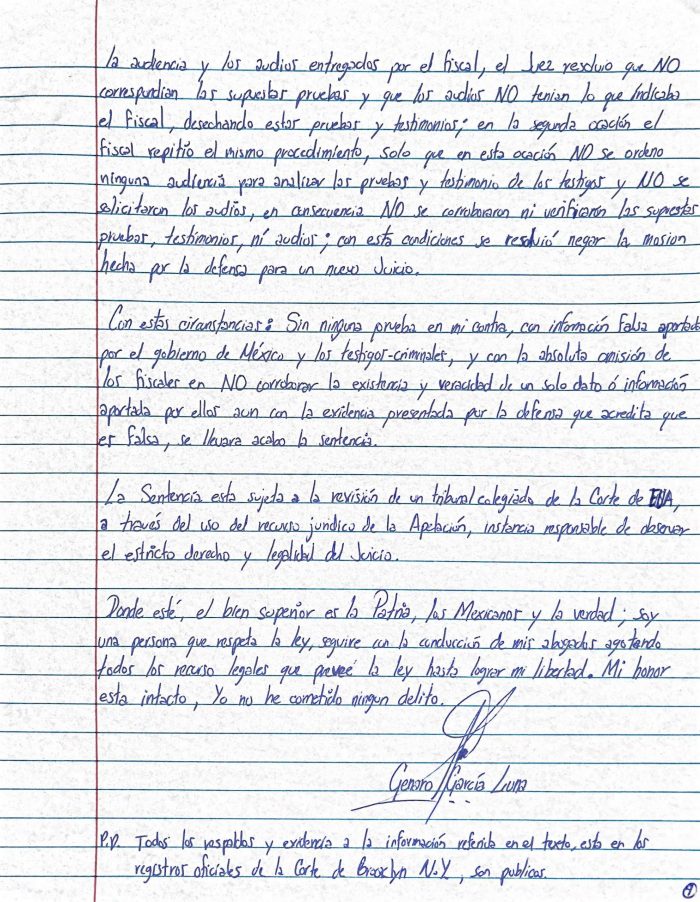 la audiencia y los audios entregados por el fiscal, el Juez resolvio que NO
correspondian las supuestas pruebas y que los audios NO tenian lo que Indicaba
el Fiscal, desechando estas pruebas y testimonios; en la segunda ocación el
Fiscal repitió el mismo procedimiento, solo que en esta ocación NO se ordeno
ninguna audiencia para analizar las pruebas y testimonio de los testigos y NO se
solicitaron los audios, en consecuencia NO se corroboraron ni verificaron las supuestas
pruebas, testimonios, ní audios; con esta condiciones se resolvió negar la mosion
hecha por la defensa para un nuevo Juicio.
Con estas circunstancias: Sin ninguna prueba en mi contra, con infomación Falsa aportada
por el gobierno de México y los testigos-criminales, y con la absoluta omisión de
los fiscales en NO corroborar la existencia y veracidad de un solo dato ó información
aportada por ellos aun con la evidencia presentada por la defensa que acredita que
es Falsa, se llevara acabo la sentencia.
La Sentencia esta sujeta a la revisión de un tribunal colegiado de la Corte de EUA,
a través del uso del recurso jurídico de la Apelación, instancia responsable de observar
el estricto derecho y legalidad del Juicio.
Donde esté, el bien superior es la Patria, los Mexicanos y la verdad; soy
una persona que respeta la ley, seguire con la conducción de mis abogados agotando
todos los recurso legales que preveé la ley hasta lograr mi libertad. Mi honor
esta intacto, Yo no he cometido ningun delito.
Genaro García Luna
P.D. Todos los respaldos y evidencia a la información referida en el texto, esta en los
registros oficiales de la Corte de Brooklyn N.Y, son publicos.